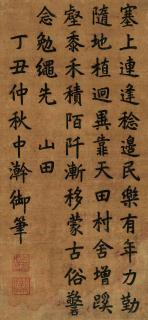 塞上連逢稔邊民樂有年力勤
隨地植迥異靠天田村舍增蹊
壑黍禾積陌阡漸移蒙古俗警
念勉繩先 山田
丁丑仲秋中澣御筆